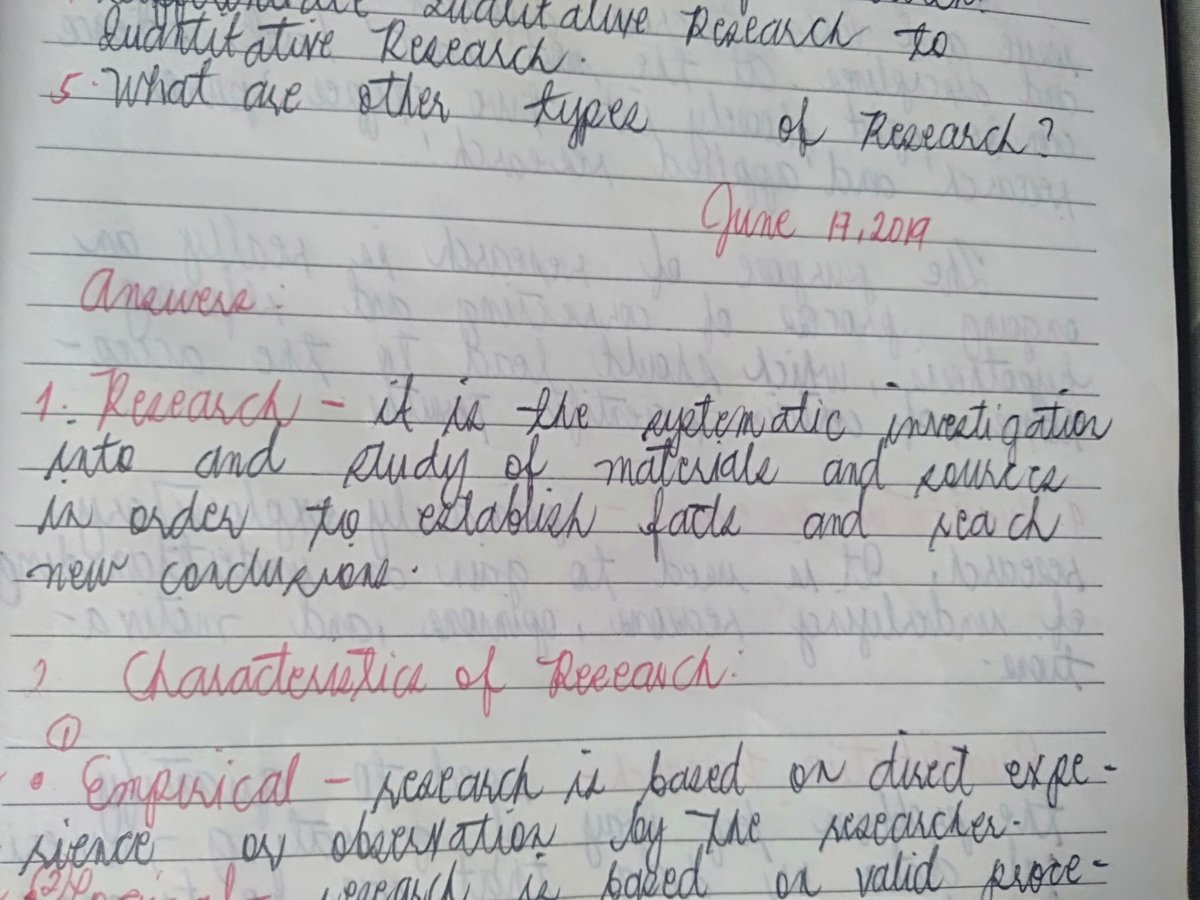 Qualitative Research to
Quantitative Research.
5. What are other types of Research?
June 17, 2019
Answers:
1. Research - it is the systematic investigation
into and study of materials and sources
in order to establish facts and reach
new conclusions.
2 Characteristics of Research:
①
• Empirical - research is based on direct expe-
rience or observation by the researcher.
(2) Logical - research is based on valid proce-